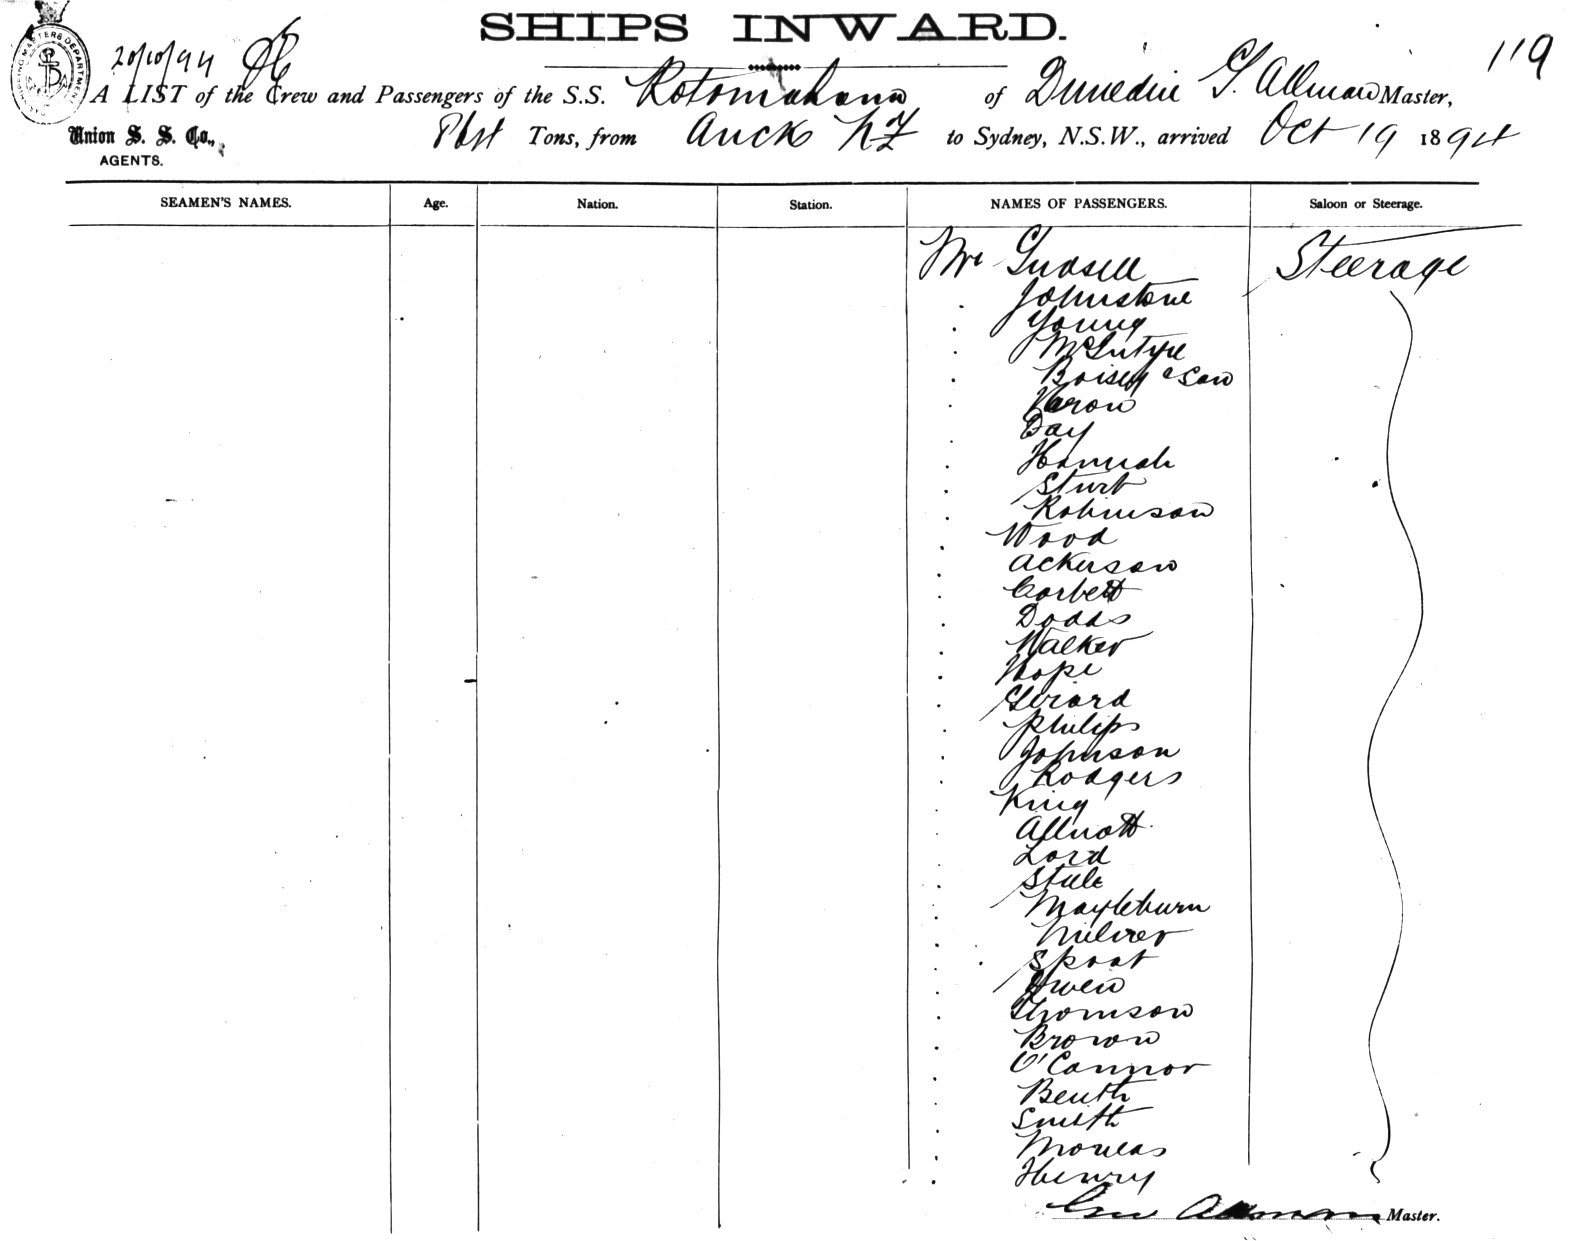 SHIPS INWARD.
20/10/94
119
A LIST of the Crew and Passengers of the S.S. Rotomahana of Dunedin G. Allman Master,
Union S. S. Co.,
AGENTS.
Tons, from Auck NZ to Sydney, N.S.W., arrived Oct 19 1894
SEAMEN'S NAMES. Age. Nation. Station. NAMES OF PASSENGERS. Saloon or Steerage.
Mr Steerage
Johnstone
Young
McIntyre
& Son
Day
Hannah
Sturt
Robinson
Wood
Ackerson
Corbett
Dodds
Walker
Hope
Girard
Philips
Johnson
Rodgers
King
Allnott
Lord
Steele
Maybeburn
Milner
Sproat
Owen
Thomson
Brown
O'Connor
Smith
Henry
Geo Allman Master.